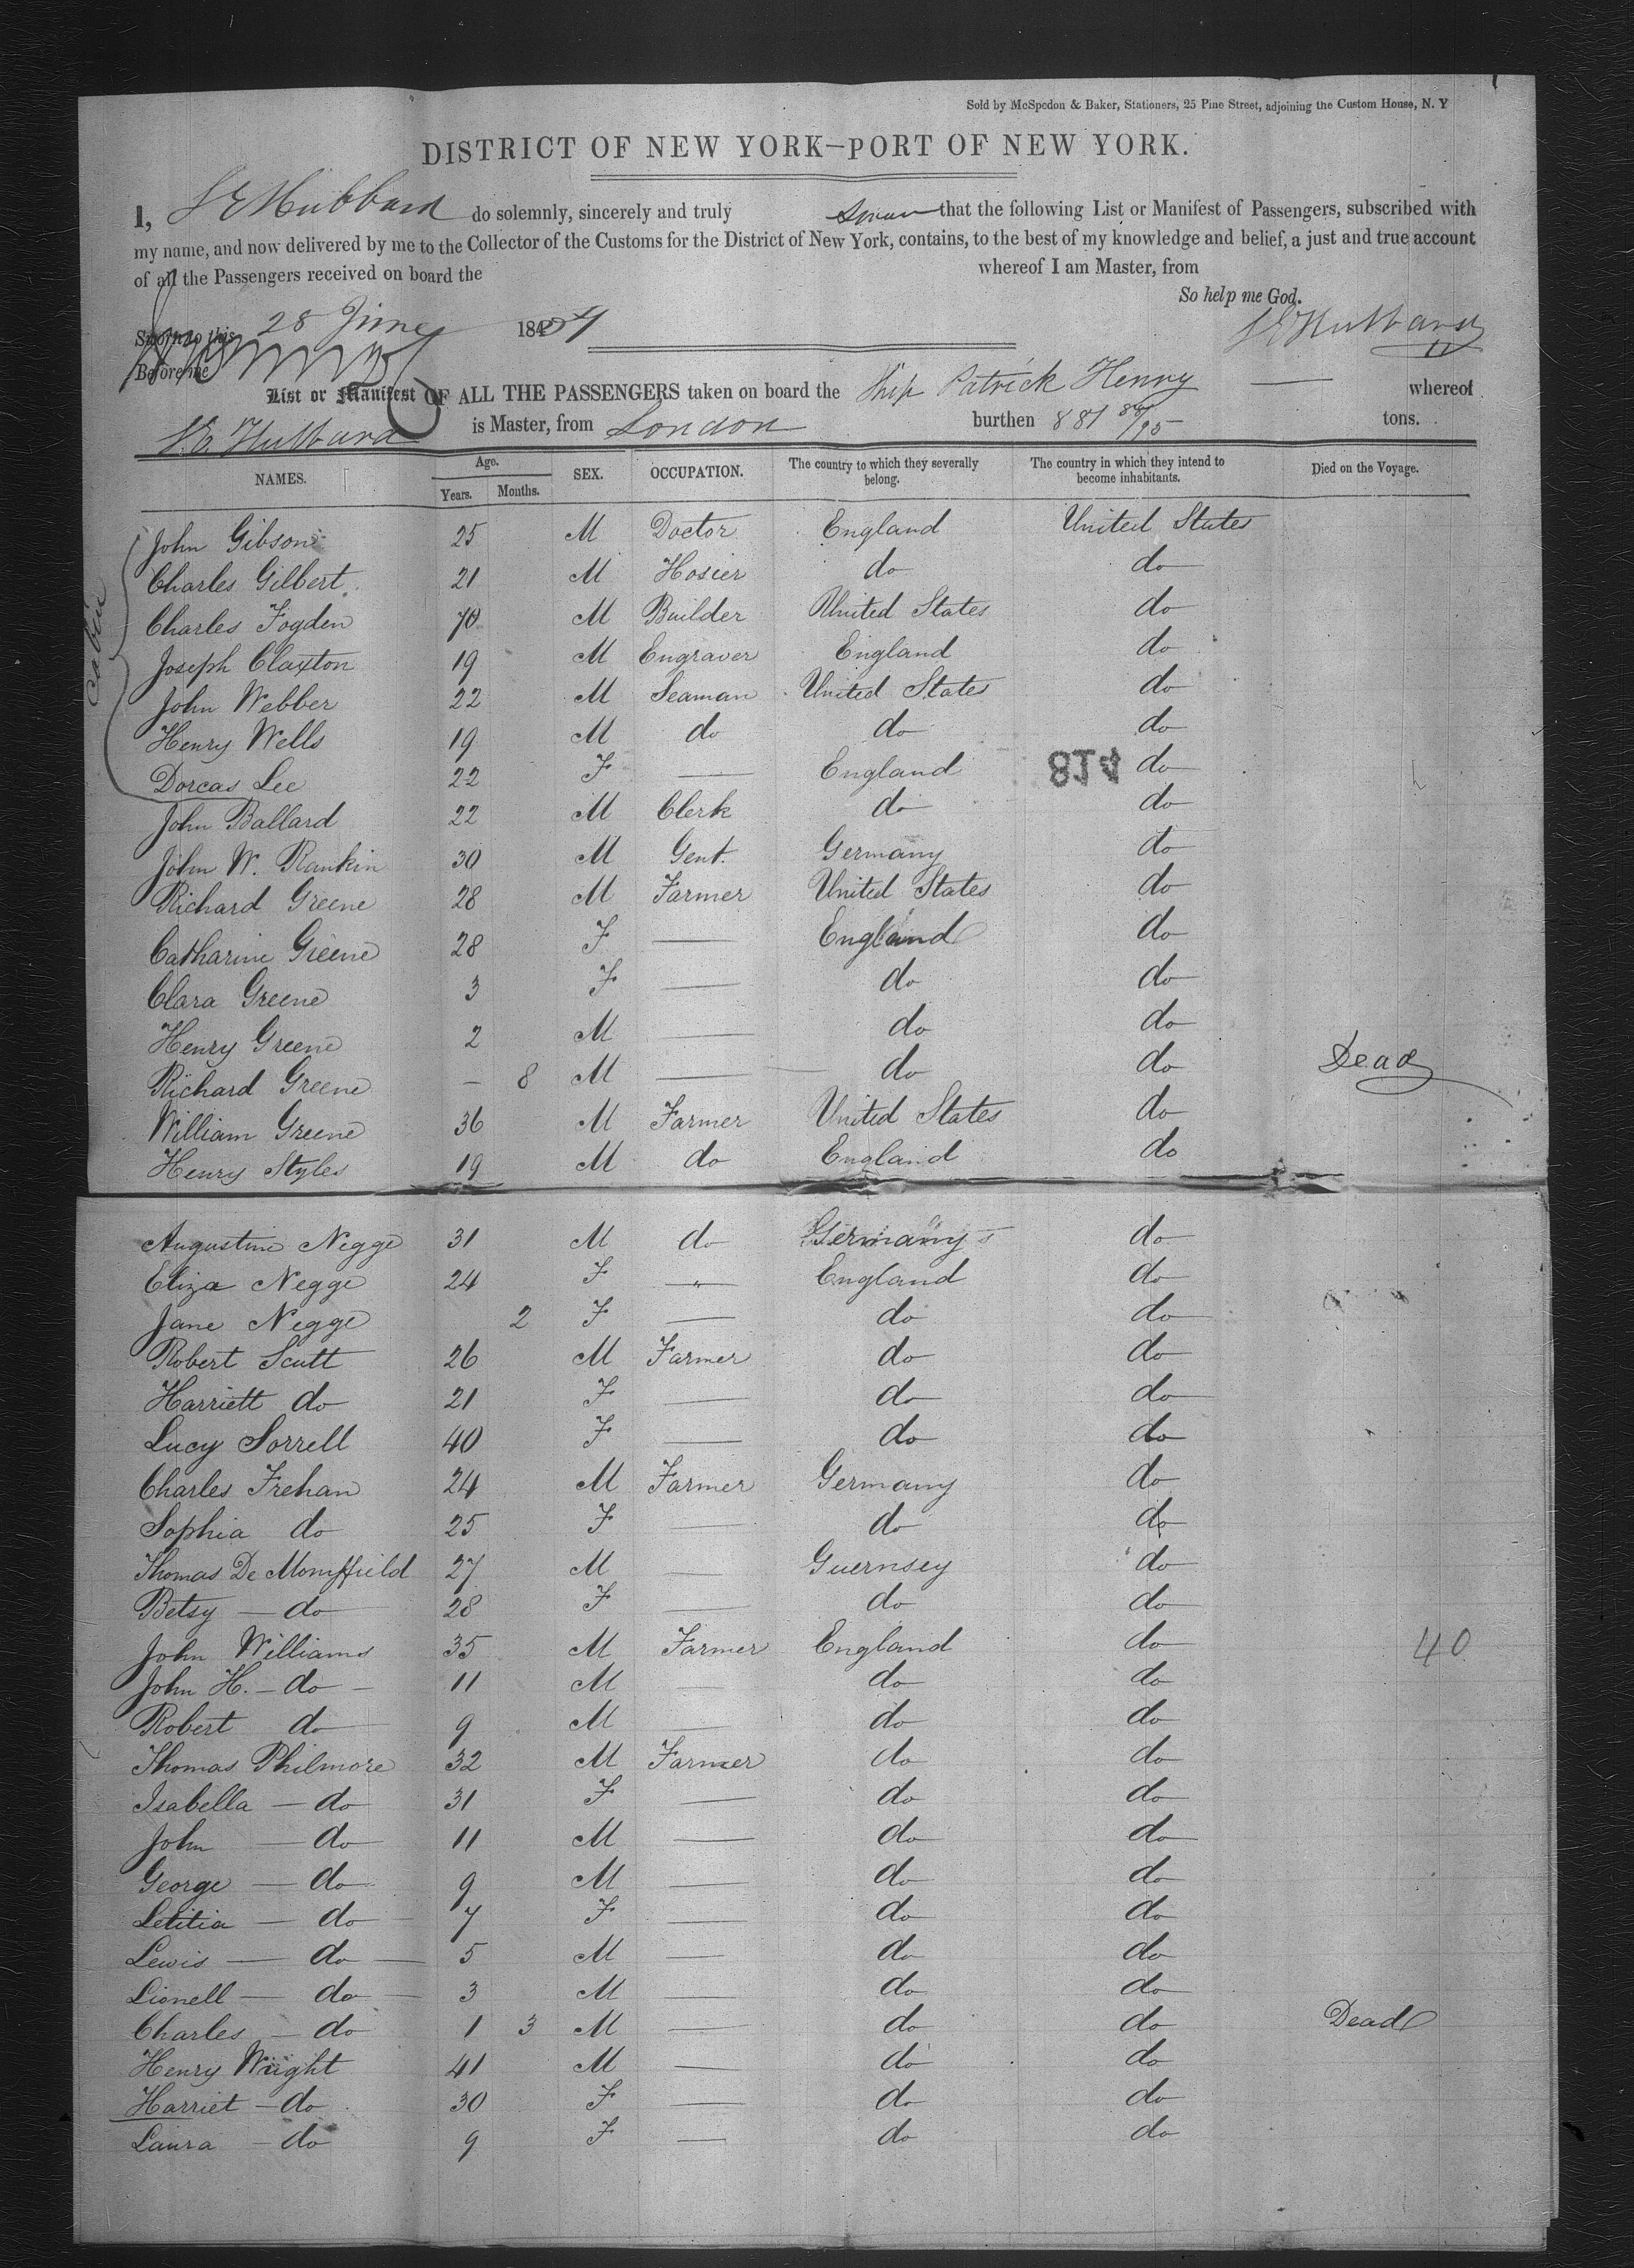 Sold by McSpedon & Baker, Stationers, 25 Pine Street, adjoining the Custom House, N. Y
DISTRICT OF NEW YORK—PORT OF NEW YORK.
I, S E Hubbard do solemnly, sincerely and truly Swear that the following List or Manifest of Passengers, subscribed with
my name, and now delivered by me to the Collector of the Customs for the District of New York, contains, to the best of my knowledge and belief, a just and true account
of all the Passengers received on board the whereof I am Master, from
So help me God.
Sworn to this 28 June 1854
S E Hubbard
Before me
List or Manifest OF ALL THE PASSENGERS taken on board the Ship Patrick Henry whereof
S. E. Hubbard is Master, from London burthen 881 tons.
NAMES. Age. Years. Months. SEX. OCCUPATION. The country to which they severally belong. The country in which they intend to become inhabitants. Died on the Voyage.
cabin
John Gibson 25 M Doctor England United States
Charles Gilbert 21 M Hosier do do
Charles Fogden 70 M Builder United States do
Joseph Claxton 19 M Engraver England do
John Webber 22 M Seaman United States do
Henry Wells 19 M do do do
Dorcas Lee 22 F — England 814 do
John Ballard 22 M Clerk do do
John W. Rankin 30 M Gent. Germany do
Richard Greene 28 M Farmer United States do
Catharine Greene 28 F — England do
Clara Greene 3 F — do do
Henry Greene 2 M — do do
Richard Greene — 8 M — do do Dead
William Greene 36 M Farmer United States do
Henry Styles 19 M do England do
Augustine Negge 31 M do Germany do
Eliza Negge 24 F — England do
Jane Negge 2 F — do do
Robert Scutt 26 M Farmer do do
Harriett do 21 F — do do
Lucy Sorrell 40 F — do do
Charles Frehan 24 M Farmer Germany do
Sophia do 25 F — do do
Thomas De 27 M — Guernsey do
Betsy — do 28 F — do do
John Williams 35 M Farmer England do 40
John H. — do — 11 M — do do
Robert do 9 M — do do
Thomas Philmore 32 M Farmer do do
Isabella — do 31 F — do do
John — do 11 M — do do
George — do 9 M — do do
Letitia — do 7 F — do do
Lewis — do — 5 M — do do
Lionell — do — 3 M — do do
Charles — do 1 3 M — do do Dead
Henry Wright 41 M — do do
Harriet — do 30 F — do do
Laura — do 9 F — do do